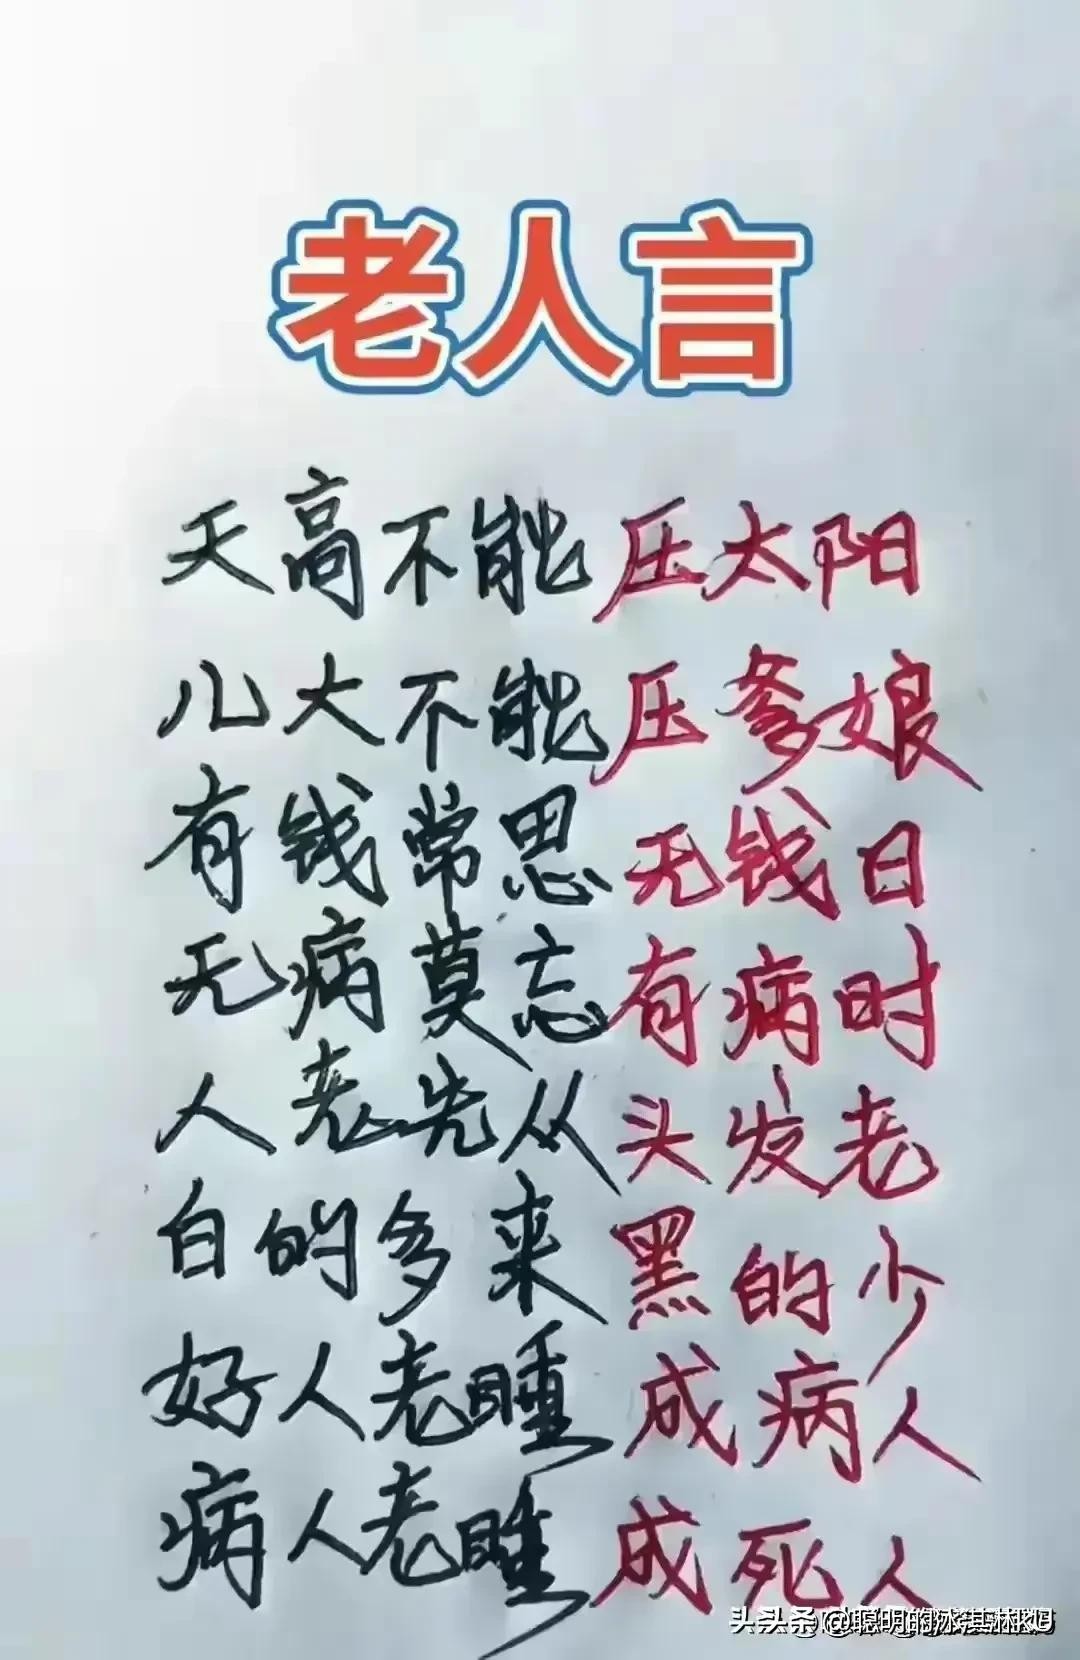 老人言
天高不能压太阳
儿大不能压爹娘
有钱常思无钱日
无病莫忘有病时
人老先从头发老
白的多来黑的少
好人老睡成病人
病人老睡成死人
头条 @聪明的冰淇淋kU